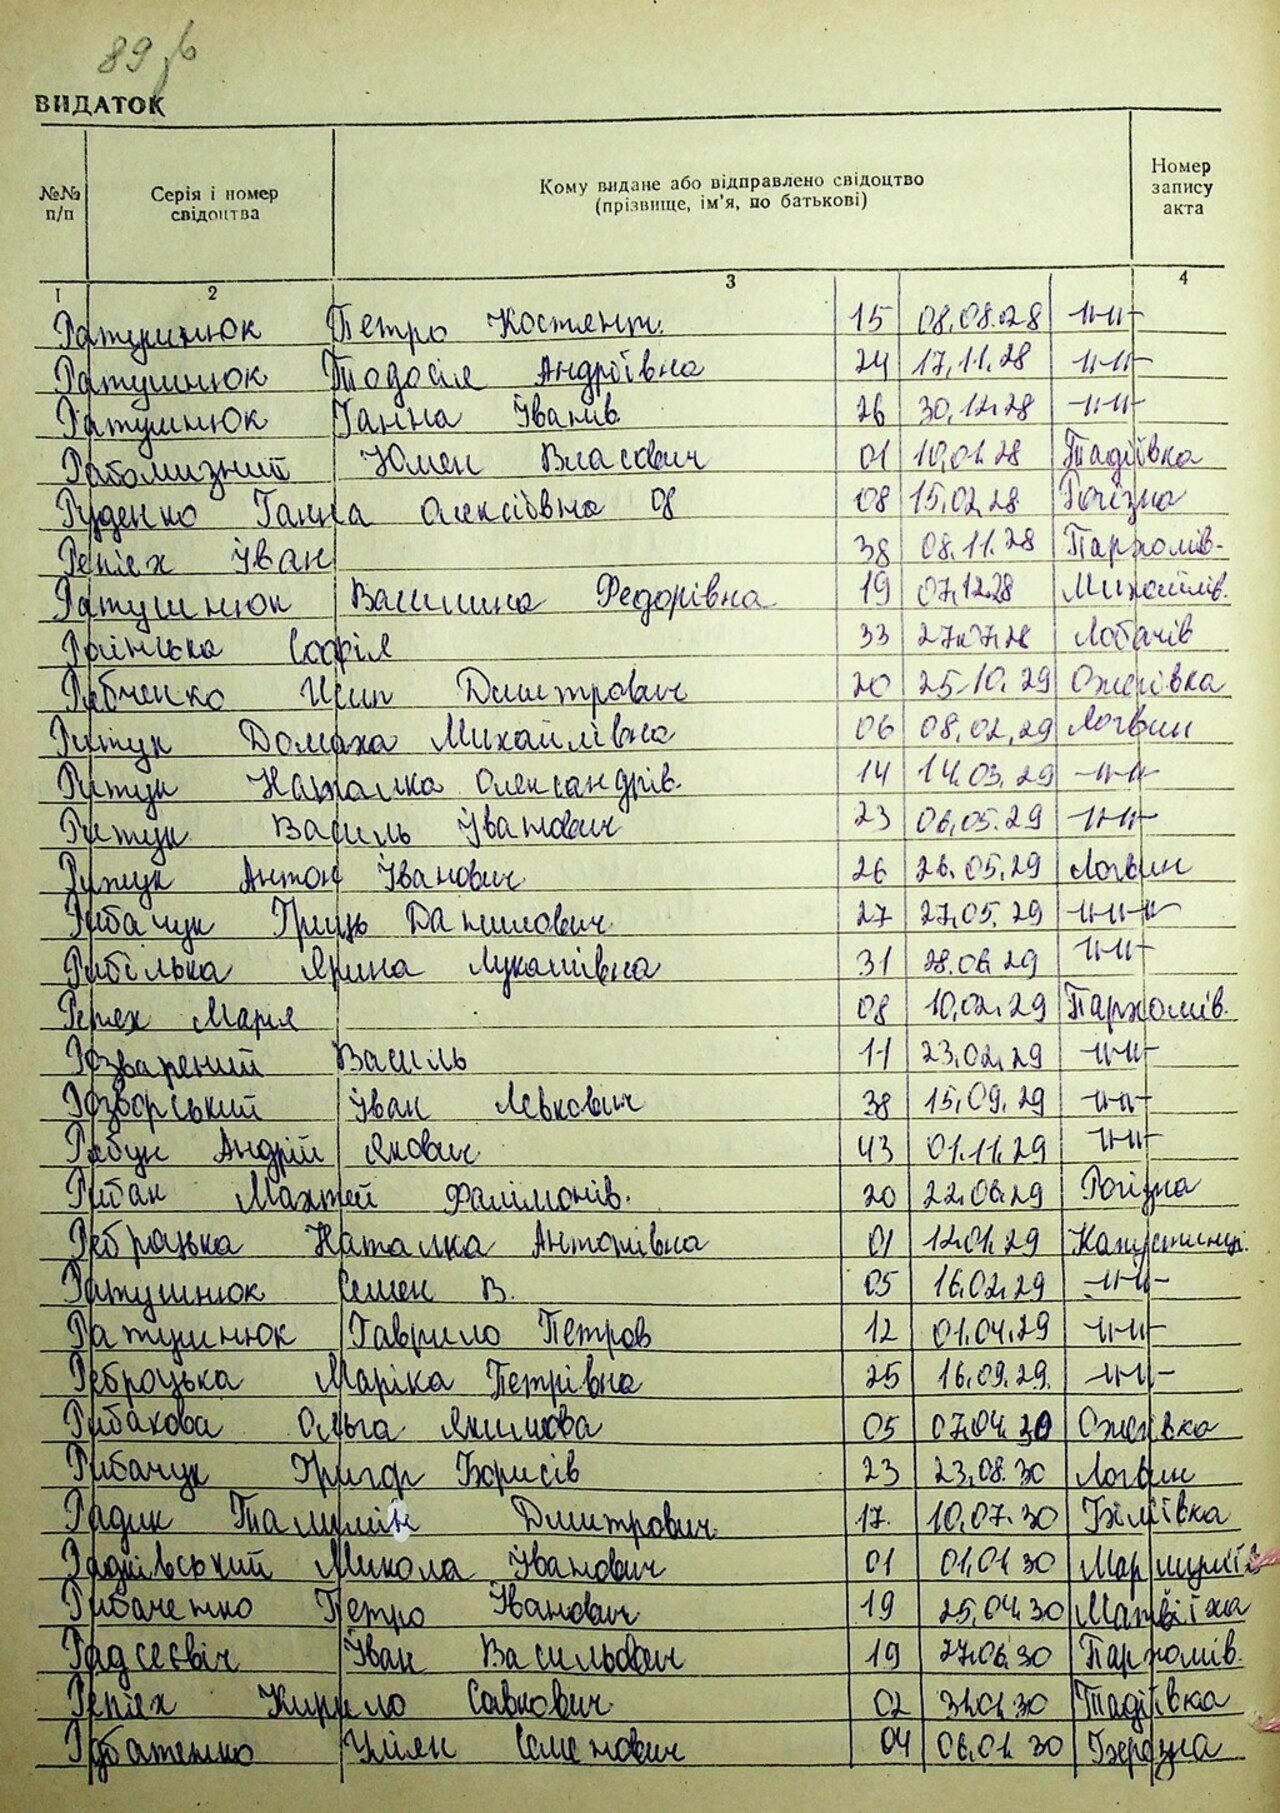 89
ВИДАТОК
№№ п/п Серія і номер свідоцтва Кому видане або відправлено свідоцтво (прізвище, ім'я, по батькові) Номер запису акта
1 2 3 4
Ратушнюк Петро Костянт. 15 08.08.28 -//-//-
Ратушнюк Тодосія Андріївна 24 17.11.28 -//-//-
Ратушнюк Ганна Іванів. 26 30.12.28 -//-//-
Юмен Власович 01 10.01.28 Тадіївка
Руденко Ганна Олексіївна 08 08 15.02.28 Рогізна
Реп'ях Іван 38 08.11.28 Пархомів.
Ратушнюк Василина Федорівна 19 07.12.28 Михайлів.
Софія 33 27.07.28 Лобачів
Рябченко Дмитрович 20 25.10.29 Ожегівка
Ритук Домаха Михайлівна 06 08.02.29 Логвин
Ритук Наталка Олександрів. 14 14.03.29 -//-//-
Ритук Василь Іванович 23 06.05.29 -//-//-
Ритук Антон Іванович 26 26.05.29 Логвин
Рибачук Гриць Данилович 27 27.05.29 -//-//-
Рибілька Ярина Лукашівна 31 28.06.29 -//-//-
Репех Марія 08 10.02.29 Пархомів.
Розварений Василь 11 23.02.29 -//-//-
Розворський Іван Левкович 38 15.09.29 -//-//-
Рябун Андрій Якович 43 01.11.29 -//-//-
Рибак Махтей Филимонів. 20 22.06.29 Рогізна
Реброцька Наталка Антонівна 01 12.01.29
Ратушнюк Семен В. 05 16.02.29 -//-//-
Ратушнюк Гаврило Петров 12 01.04.29 -//-//-
Реброцька Маріка Петрівна 25 16.09.29. -//-//-
Рибакова Ольга Якимова 05 07.04.30 Ожегівка
Рибачук Григор Борисів 23 23.08.30 Логвин
Радик Дмитрович 17. 10.07.30 Біліївка
Радківський Микола Іванович 01 01.01.30
Рибаченко Петро Іванович 19 25.04.30 Матвіїха
Радсевіч Іван Васильович 19 27.06.30 Пархомів.
Реп'ях Кирило Савкович 02 31.01.30 Тадіївка
Рубатенко Улян Семенович 04 06.01.30 Березна